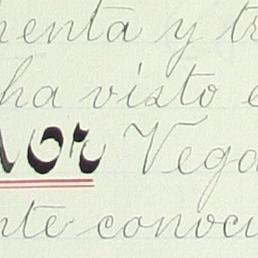 enta y tr
ha visto e
or Vega
nte conoci